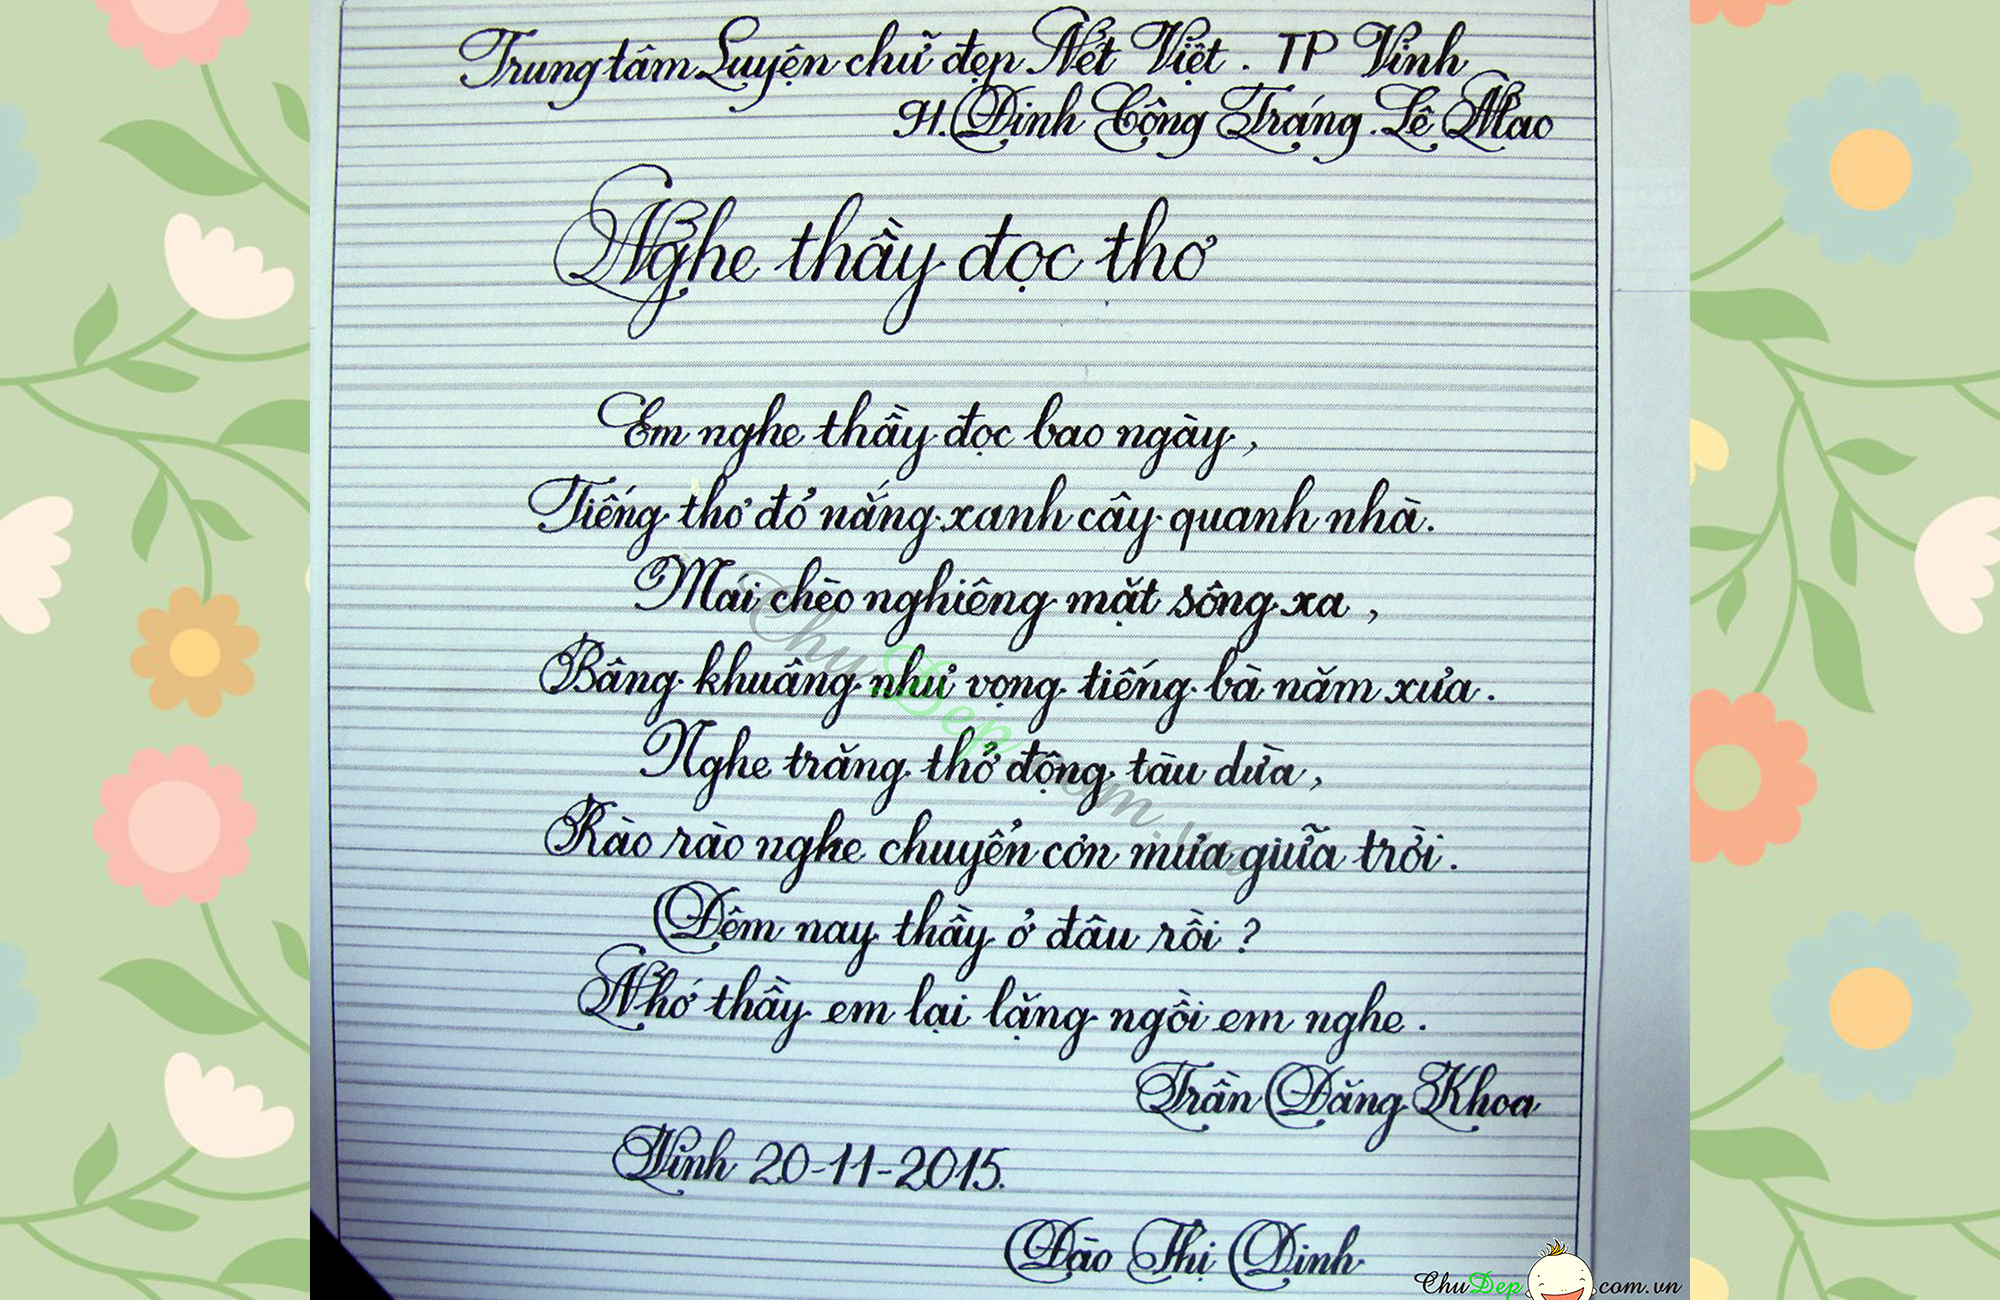 Trung tâm Luyện chữ đẹp Nét Việt. TP Vinh
91. Đinh Công Tráng. Lê Mao
Nghe thầy đọc thơ
Em nghe thầy đọc bao ngày,
Tiếng thơ đỏ nắng xanh cây quanh nhà.
Mái chèo nghiêng mặt sông xa,
Bâng khuâng như vọng tiếng bà năm xưa.
Nghe trăng thở động tàu dừa,
Rào rào nghe chuyển cơn mưa giữa trời.
Đêm nay thầy ở đâu rồi?
Nhớ thầy em lại lặng ngồi em nghe.
Trần Đăng Khoa
Vinh 20-11-2015.
Đào Thị Dinh
ChuDep.com.vn
ChuDep.com.vn